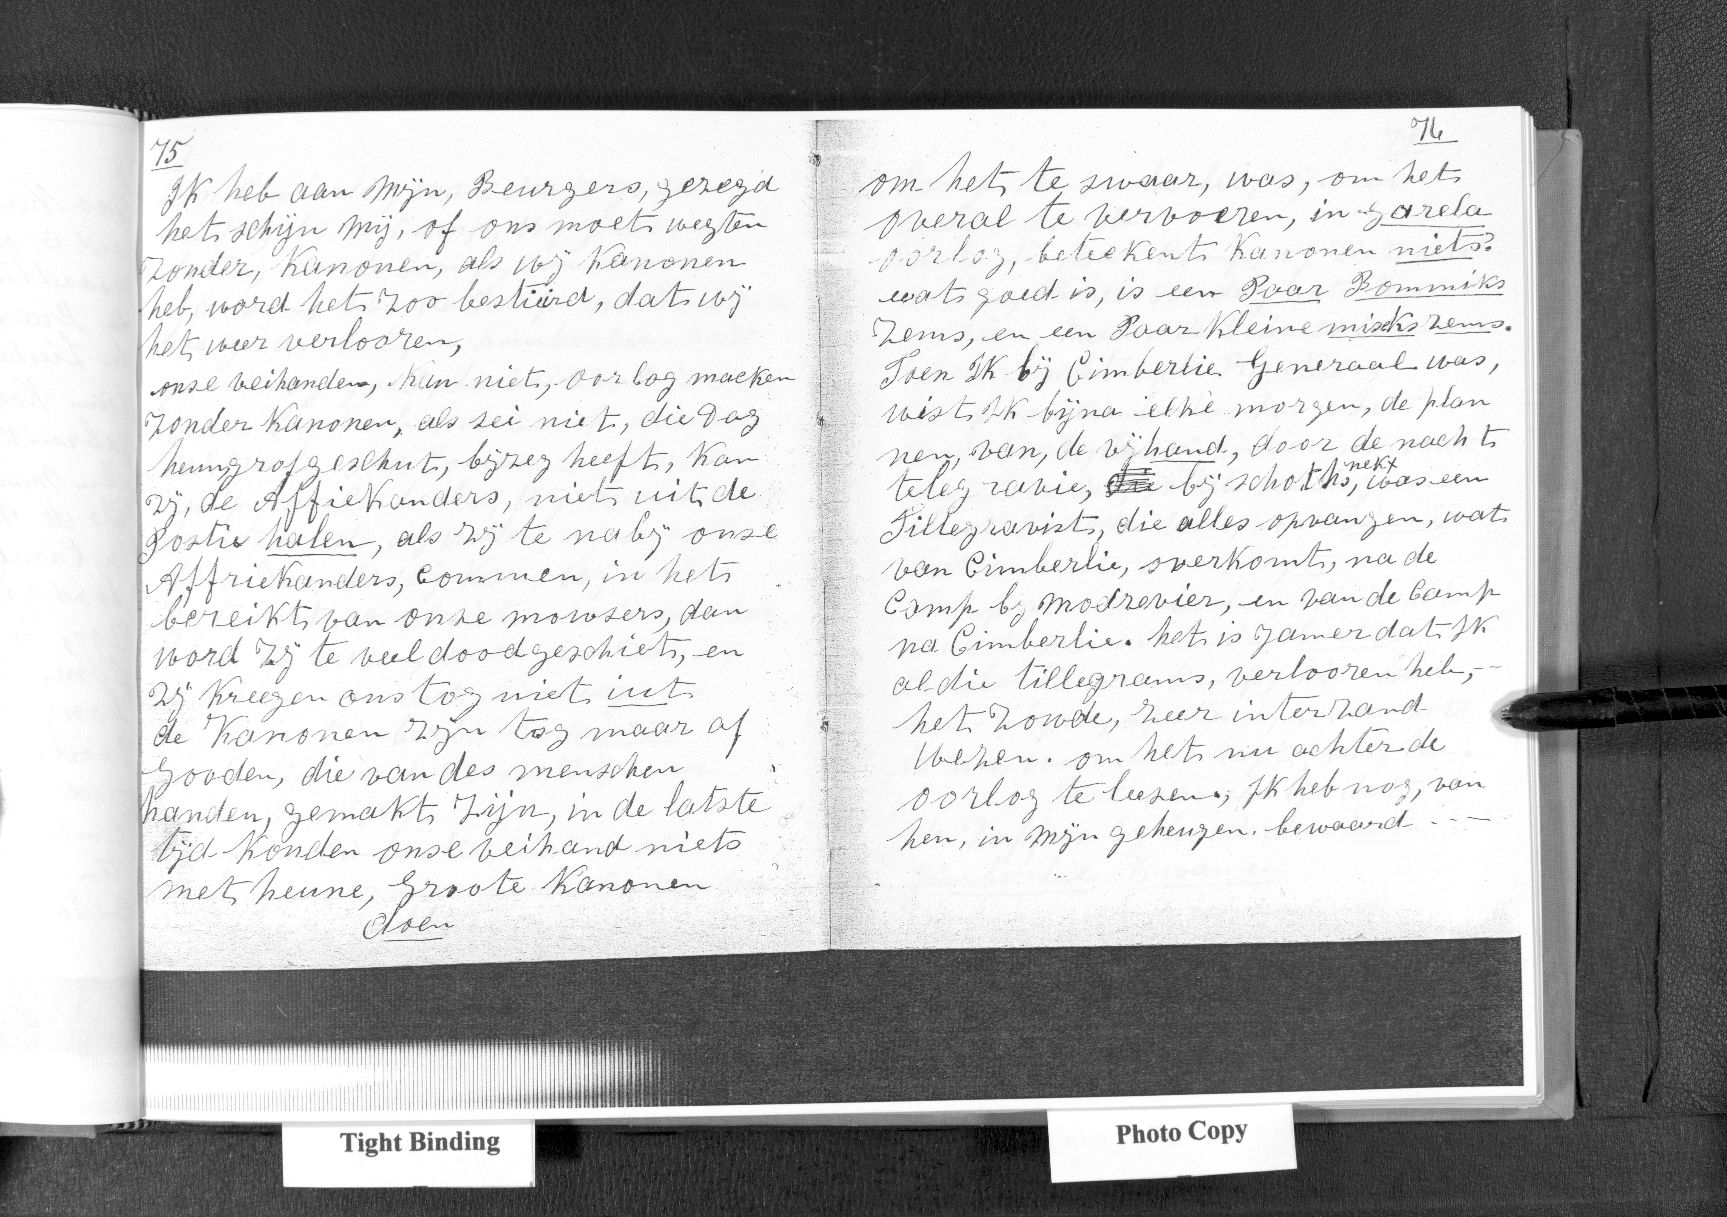 75
Ik heb aan Mijn, Beurgers, gezegd
het schijn Mij, of ons moet vegten
Zonder, Kanonen, als wij Kanonen
heb, word het Zoo bestiérd, dat wij
het weer verlooren,
onse veihanden, Kan niet, oorlog macken
Zonder Kanonen, als sei niet, die Dag
heun grofgeschut, bijzeg heeft, Kan
Zij, de AffieKanders, niet uit de
Postie halen, als Zij te nabij onse
AffrieKanders, Commen, in het
bereikt van onse mowsers, dan
word Zij te veel doodgeschiet, en
Zij Kreegen ons tog niet iut
de Kanonen Zijn tog maar af
Gooden, die van des menschen
handen, gemakt Zijn, in de latste
tijd Konden onse veihand niets
met heune, Groote Kanonen
doen
76
om het te swaar, was, om het
overal te vervoeren, in garela
oorlog, beteekent Kanonen niets.
wat goed is, is een Paar Bommiks
Zems, en een Paar Kleine misks zems.
Toen Ik bij Cimberlie Generaal was,
wist Ik bijna elke morgen, de plan
nen, van, de vijhand, door de nacht
telegravie, die bij schoths, nekx was een
Tillegravist, die alles opvangen, wat
van Cimberlie, overkomt, na de
Camp by Modrevier, en van de Camp
na Cimberlie. het is Jamer dat Ik
al die tillegrams, verlooren heb,--
het Zowde, Zeer interzand
Wezen. om het nu achter de
oorlog te leezen, Ik heb nog, van
hen, in Mijn geheugen. bewaard ---
Tight Binding
Photo Copy